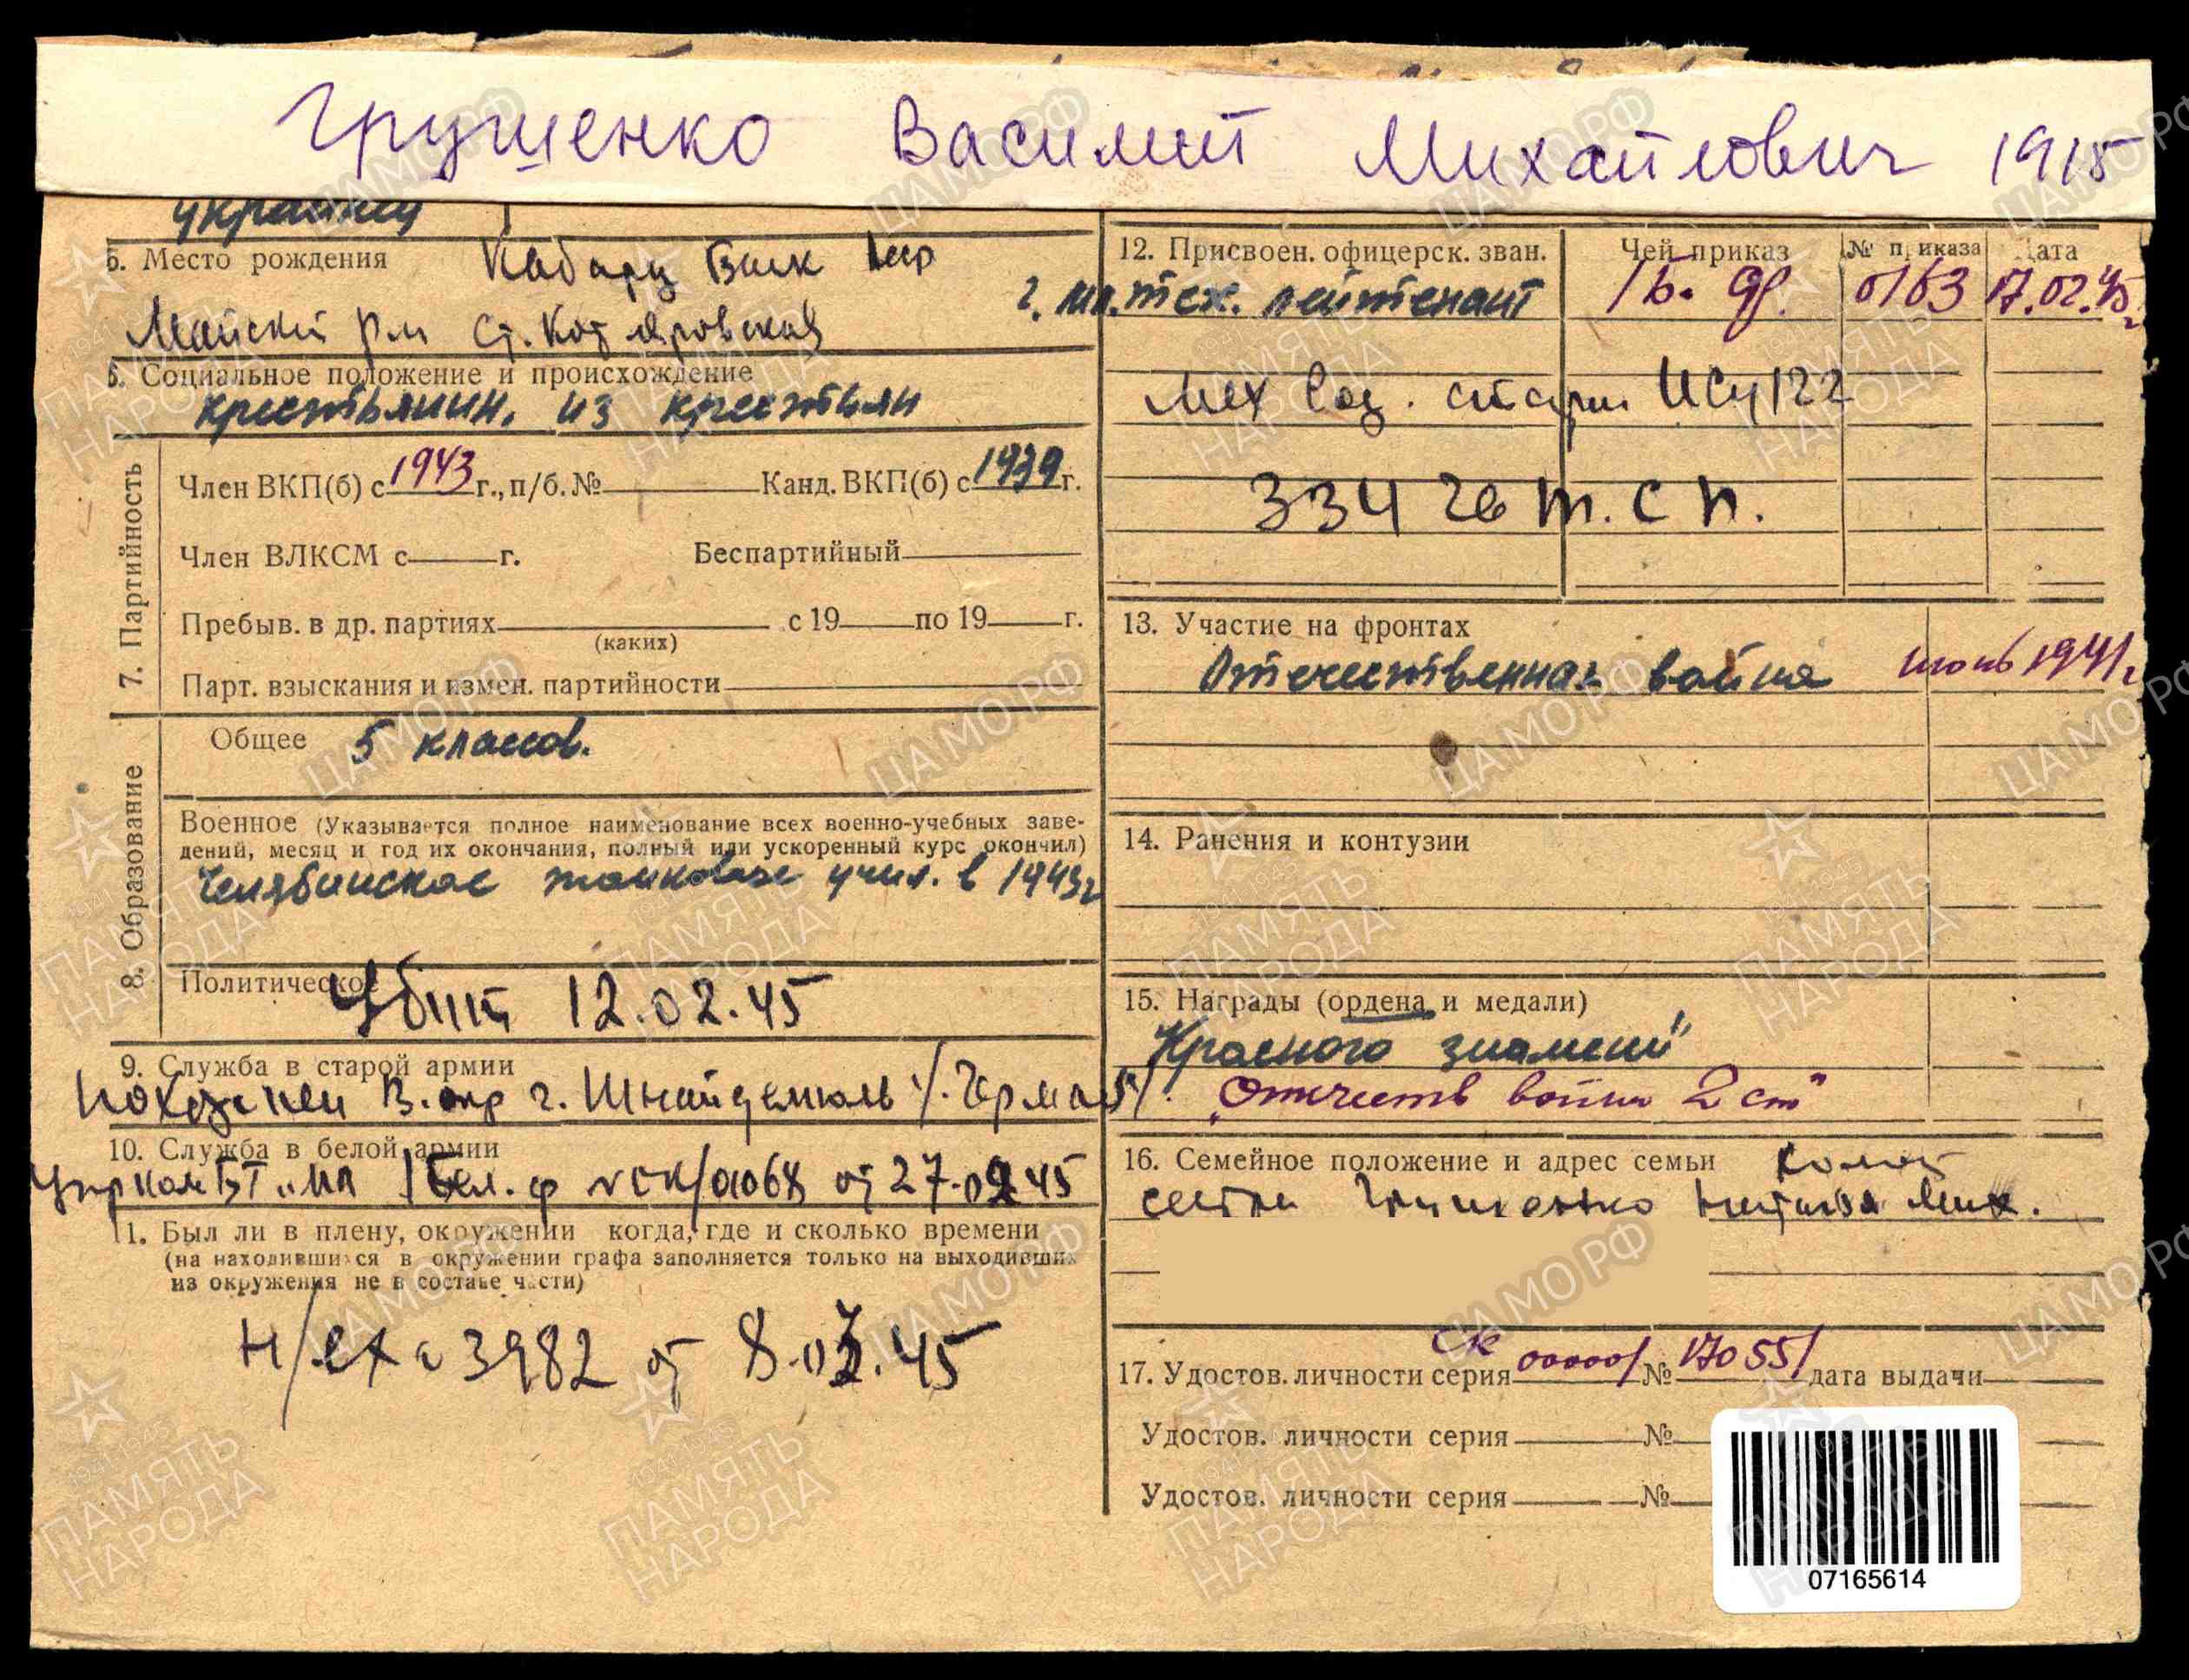 Грушенко Василий Михайлович 1915
украинец
5. Место рождения Кабард Балк
Майский р-н ст. Котляровская
6. Социальное положение и происхождение
крестьянин, из крестьян
7. Партийность
Член ВКП(б) с 1943 г., п/б. № Канд. ВКП(б) с 1939 г.
Член ВЛКСМ с г. Беспартийный
Пребыв. в др. партиях с 19 по 19 г.
(каких)
Парт. взыскания и измен. партийности
8. Образование
Общее 5 классов.
Военное (Указывается полное наименование всех военно-учебных заве-
дений, месяц и год их окончания, полный или ускоренный курс окончил)
Челябинское танковое учил. в 1943 г
Политическое
Убит 12.02.45
9. Служба в старой армии
Похоронен В. окр г. Шнайдемюль /Герма
10. Служба в белой армии
Упр ком БТ и МВ 1 Бел. ф от 27.02.45
11. Был ли в плену, окружении когда, где и сколько времени
(на находившихся в окружении графа заполняется только на выходивших
из окружения не в составе части)
3982 от 8.03.45
12. Присвоен. офицерск. зван. Чей приказ № приказа Дата
г. мл. тех. лейтенант 1 б. ф. 0163 17.02.45 г
мех вод. старш ИСУ 122
334 гв т. с п.
13. Участие на фронтах
Отечественная война июнь 1941 г
14. Ранения и контузии
15. Награды (ордена и медали)
Красного знамени"
"Отечеств войны 2 ст"
16. Семейное положение и адрес семьи холост
сестра Наталья Мих.
17. Удостов. личности серия СК 00000/ № 17055/ дата выдачи
Удостов. личности серия №
Удостов. личности серия №
07165614
ЦАМО РФ
1941-1945
ПАМЯТЬ
НАРОДА